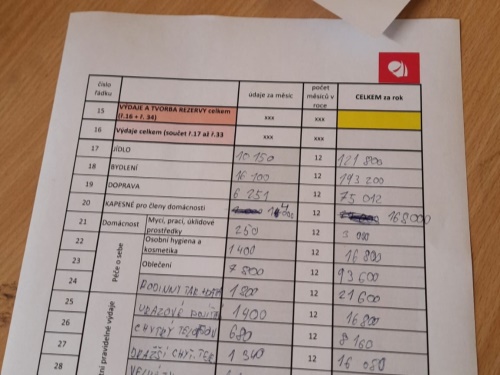 číslo řádku údaje za měsíc počet měsíců v roce CELKEM za rok
15 VÝDAJE A TVORBA REZERVY celkem (ř.16 + ř. 34) xxx xxx
16 Výdaje celkem (součet ř.17 až ř.33 xxx xxx
17 JÍDLO 10 150 12 121 800
18 BYDLENÍ 16 100 12 193 200
19 DOPRAVA 6 251 12 75 012
20 KAPESNÉ pro členy domácnosti 12 168 000
21 Domácnost Mycí, prací, úklidové prostředky 250 12 3 000
22 Péče o sebe Osobní hygiena a kosmetika 1 400 12 16 800
23 Oblečení 7 800 12 93 600
24 RODINNÝ 1 800 12 21 600
25 ÚRAZOVÉ 1 400 12 16 800
26 CHYTRÝ TELEFON 680 12 8 160
27 DRAŽŠÍ CHYT. TEL 1 340 12 16 080
28
tní pravidelné výdaje